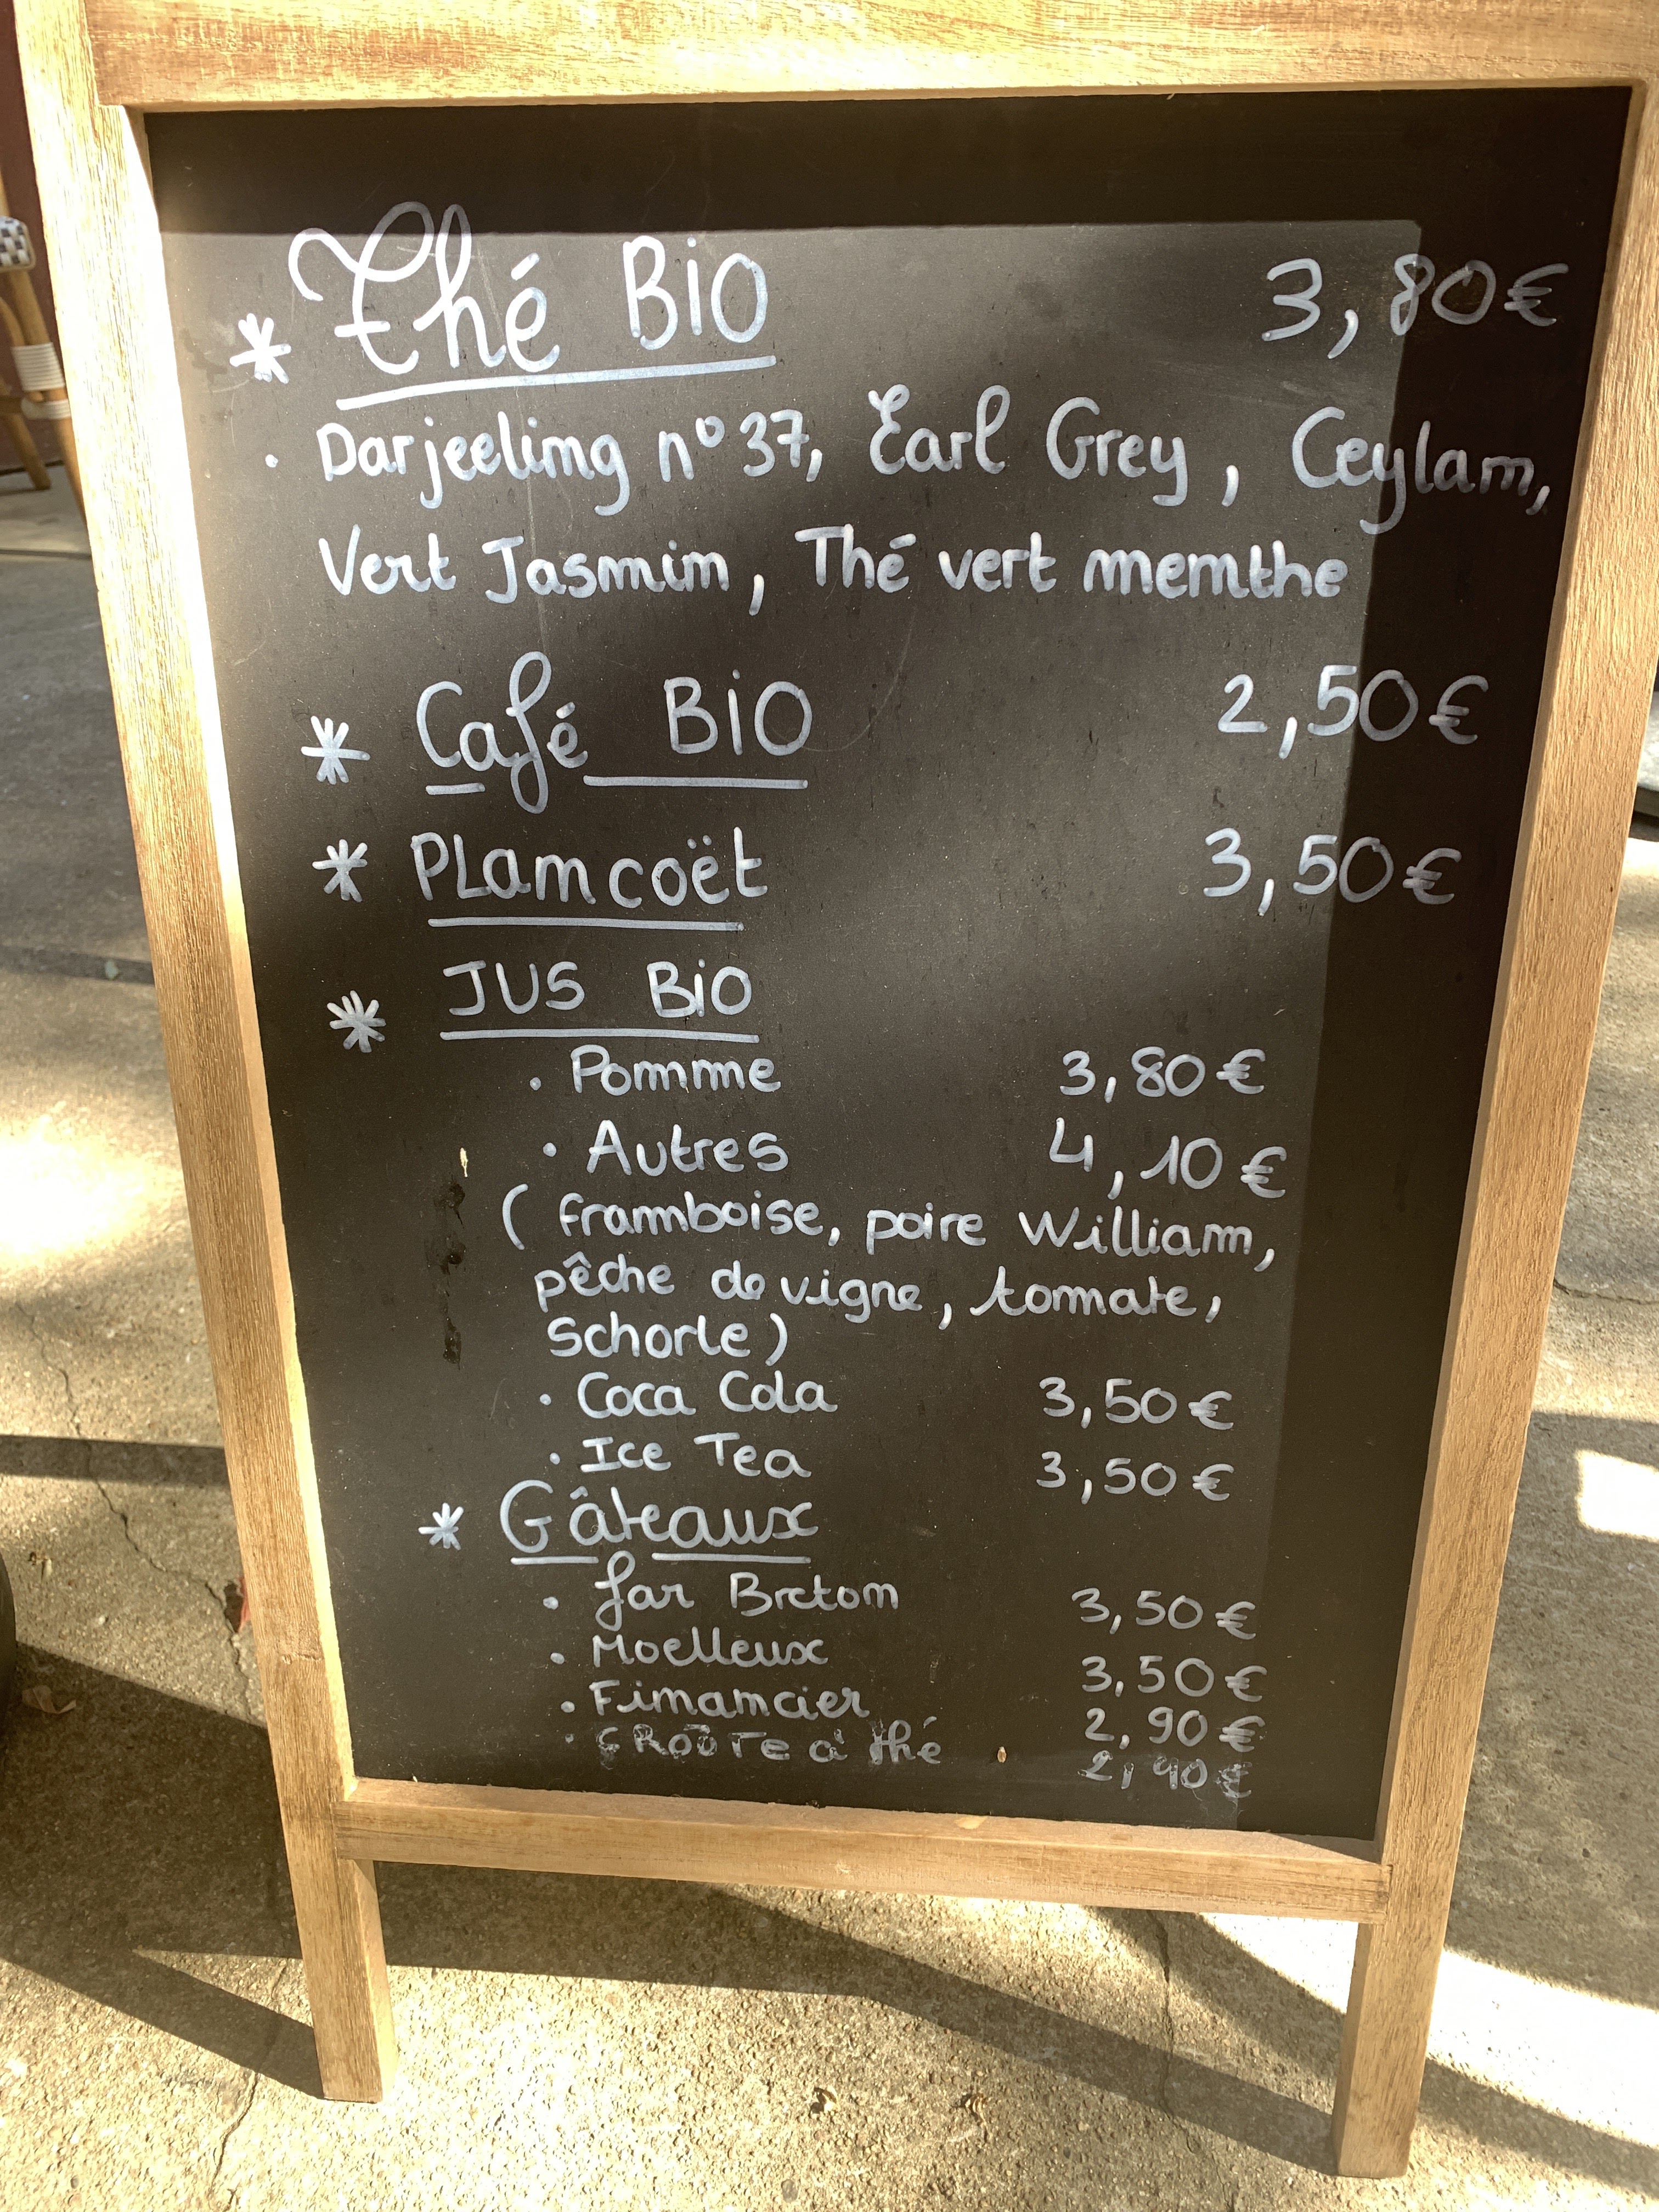 * Thé BiO 3,80€
· Darjeeling n° 37, Earl Grey, Ceylan,
Vert Jasmin, Thé vert menthe
* Café BiO 2,50€
* PLancoët 3,50€
* JUS BiO
· Pomme 3,80€
· Autres 4,10€
( framboise, poire William,
pêche de vigne, tomate,
Schorle)
· Coca Cola 3,50€
· Ice Tea 3,50€
* Gâteaux
· far Breton 3,50€
· Moelleux 3,50€
· Financier 2,90€
· à thé